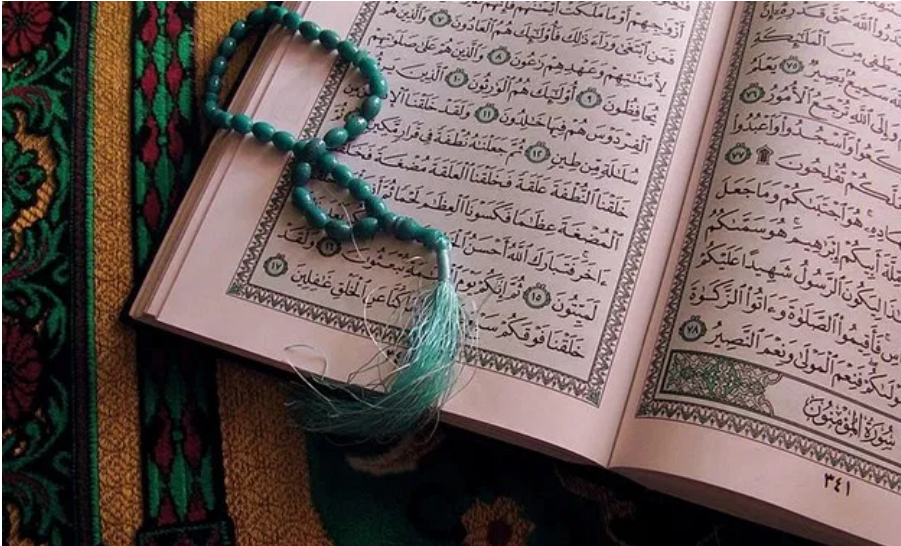 ٱللَّهَ حَقَّ قَدْرِهِۦٓ إِنَّ
مِنَ ٱلْمَلَٰٓئِكَةِ
سَمِيعٌۢ بَصِيرٌ ٧٥ يَعْلَمُ
وَإِلَى ٱللَّهِ تُرْجَعُ ٱلْأُمُورُ ٧٦
وَٱسْجُدُوا۟ وَٱعْبُدُوا۟
تُفْلِحُونَ ۩ ٧٧
هُوَ ٱجْتَبَىٰكُمْ وَمَا جَعَلَ
أَبِيكُمْ إِبْرَٰهِيمَ هُوَ سَمَّىٰكُمُ
لِيَكُونَ ٱلرَّسُولُ شَهِيدًا عَلَيْكُمْ
فَأَقِيمُوا۟ ٱلصَّلَوٰةَ وَءَاتُوا۟ ٱلزَّكَوٰةَ
فَنِعْمَ ٱلْمَوْلَىٰ وَنِعْمَ ٱلنَّصِيرُ ٧٨
سُورَةُ ٱلْمُؤْمِنُونَ
٣٤١
أَزْوَٰجِهِمْ أَوْ مَا مَلَكَتْ أَيْمَٰنُهُمْ فَإِنَّهُمْ
فَمَنِ ٱبْتَغَىٰ وَرَآءَ ذَٰلِكَ فَأُو۟لَٰٓئِكَ هُمُ ٱلْعَادُونَ ٧ وَٱلَّذِينَ هُمْ
لِأَمَٰنَٰتِهِمْ وَعَهْدِهِمْ رَٰعُونَ ٨ وَٱلَّذِينَ هُمْ عَلَىٰ صَلَوَٰتِهِمْ
يُحَافِظُونَ ٩ أُو۟لَٰٓئِكَ هُمُ ٱلْوَٰرِثُونَ ١٠ ٱلَّذِينَ
ٱلْفِرْدَوْسَ هُمْ فِيهَا خَٰلِدُونَ ١١ وَلَقَدْ خَلَقْنَا
سُلَٰلَةٍ مِّن طِينٍ ١٢ ثُمَّ جَعَلْنَٰهُ نُطْفَةً فِى قَرَارٍ مَّكِينٍ
خَلَقْنَا ٱلنُّطْفَةَ عَلَقَةً فَخَلَقْنَا ٱلْعَلَقَةَ مُضْغَةً
ٱلْمُضْغَةَ عِظَٰمًا فَكَسَوْنَا ٱلْعِظَٰمَ لَحْمًا ثُمَّ
ءَاخَرَ فَتَبَارَكَ ٱللَّهُ أَحْسَنُ
لَمَيِّتُونَ ١٥ ثُمَّ إِنَّكُمْ يَوْمَ تُبْعَثُونَ ١٦ وَلَقَدْ
خَلَقْنَا فَوْقَكُمْ كُنَّا عَنِ ٱلْخَلْقِ غَٰفِلِينَ ١٧